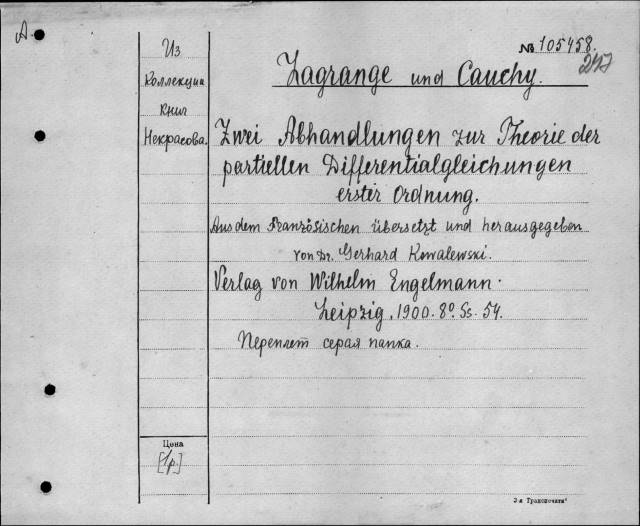 А.
Из
Коллекции
Книг
Некрасова.
№ 105458.
247
Lagrange und Cauchy.
Zwei Abhandlungen zur Theorie der
partiellen Differentialgleichungen
erster Ordnung.
Aus dem Französischen übersetzt und herausgegeben
von Dr. Gerhard Kowalewski.
Verlag von Wilhelm Engelmann.
Leipzig, 1900. 8º. Ss. 54.
Переплет серая папка.
Цена
[1р]
3-я Транспечать